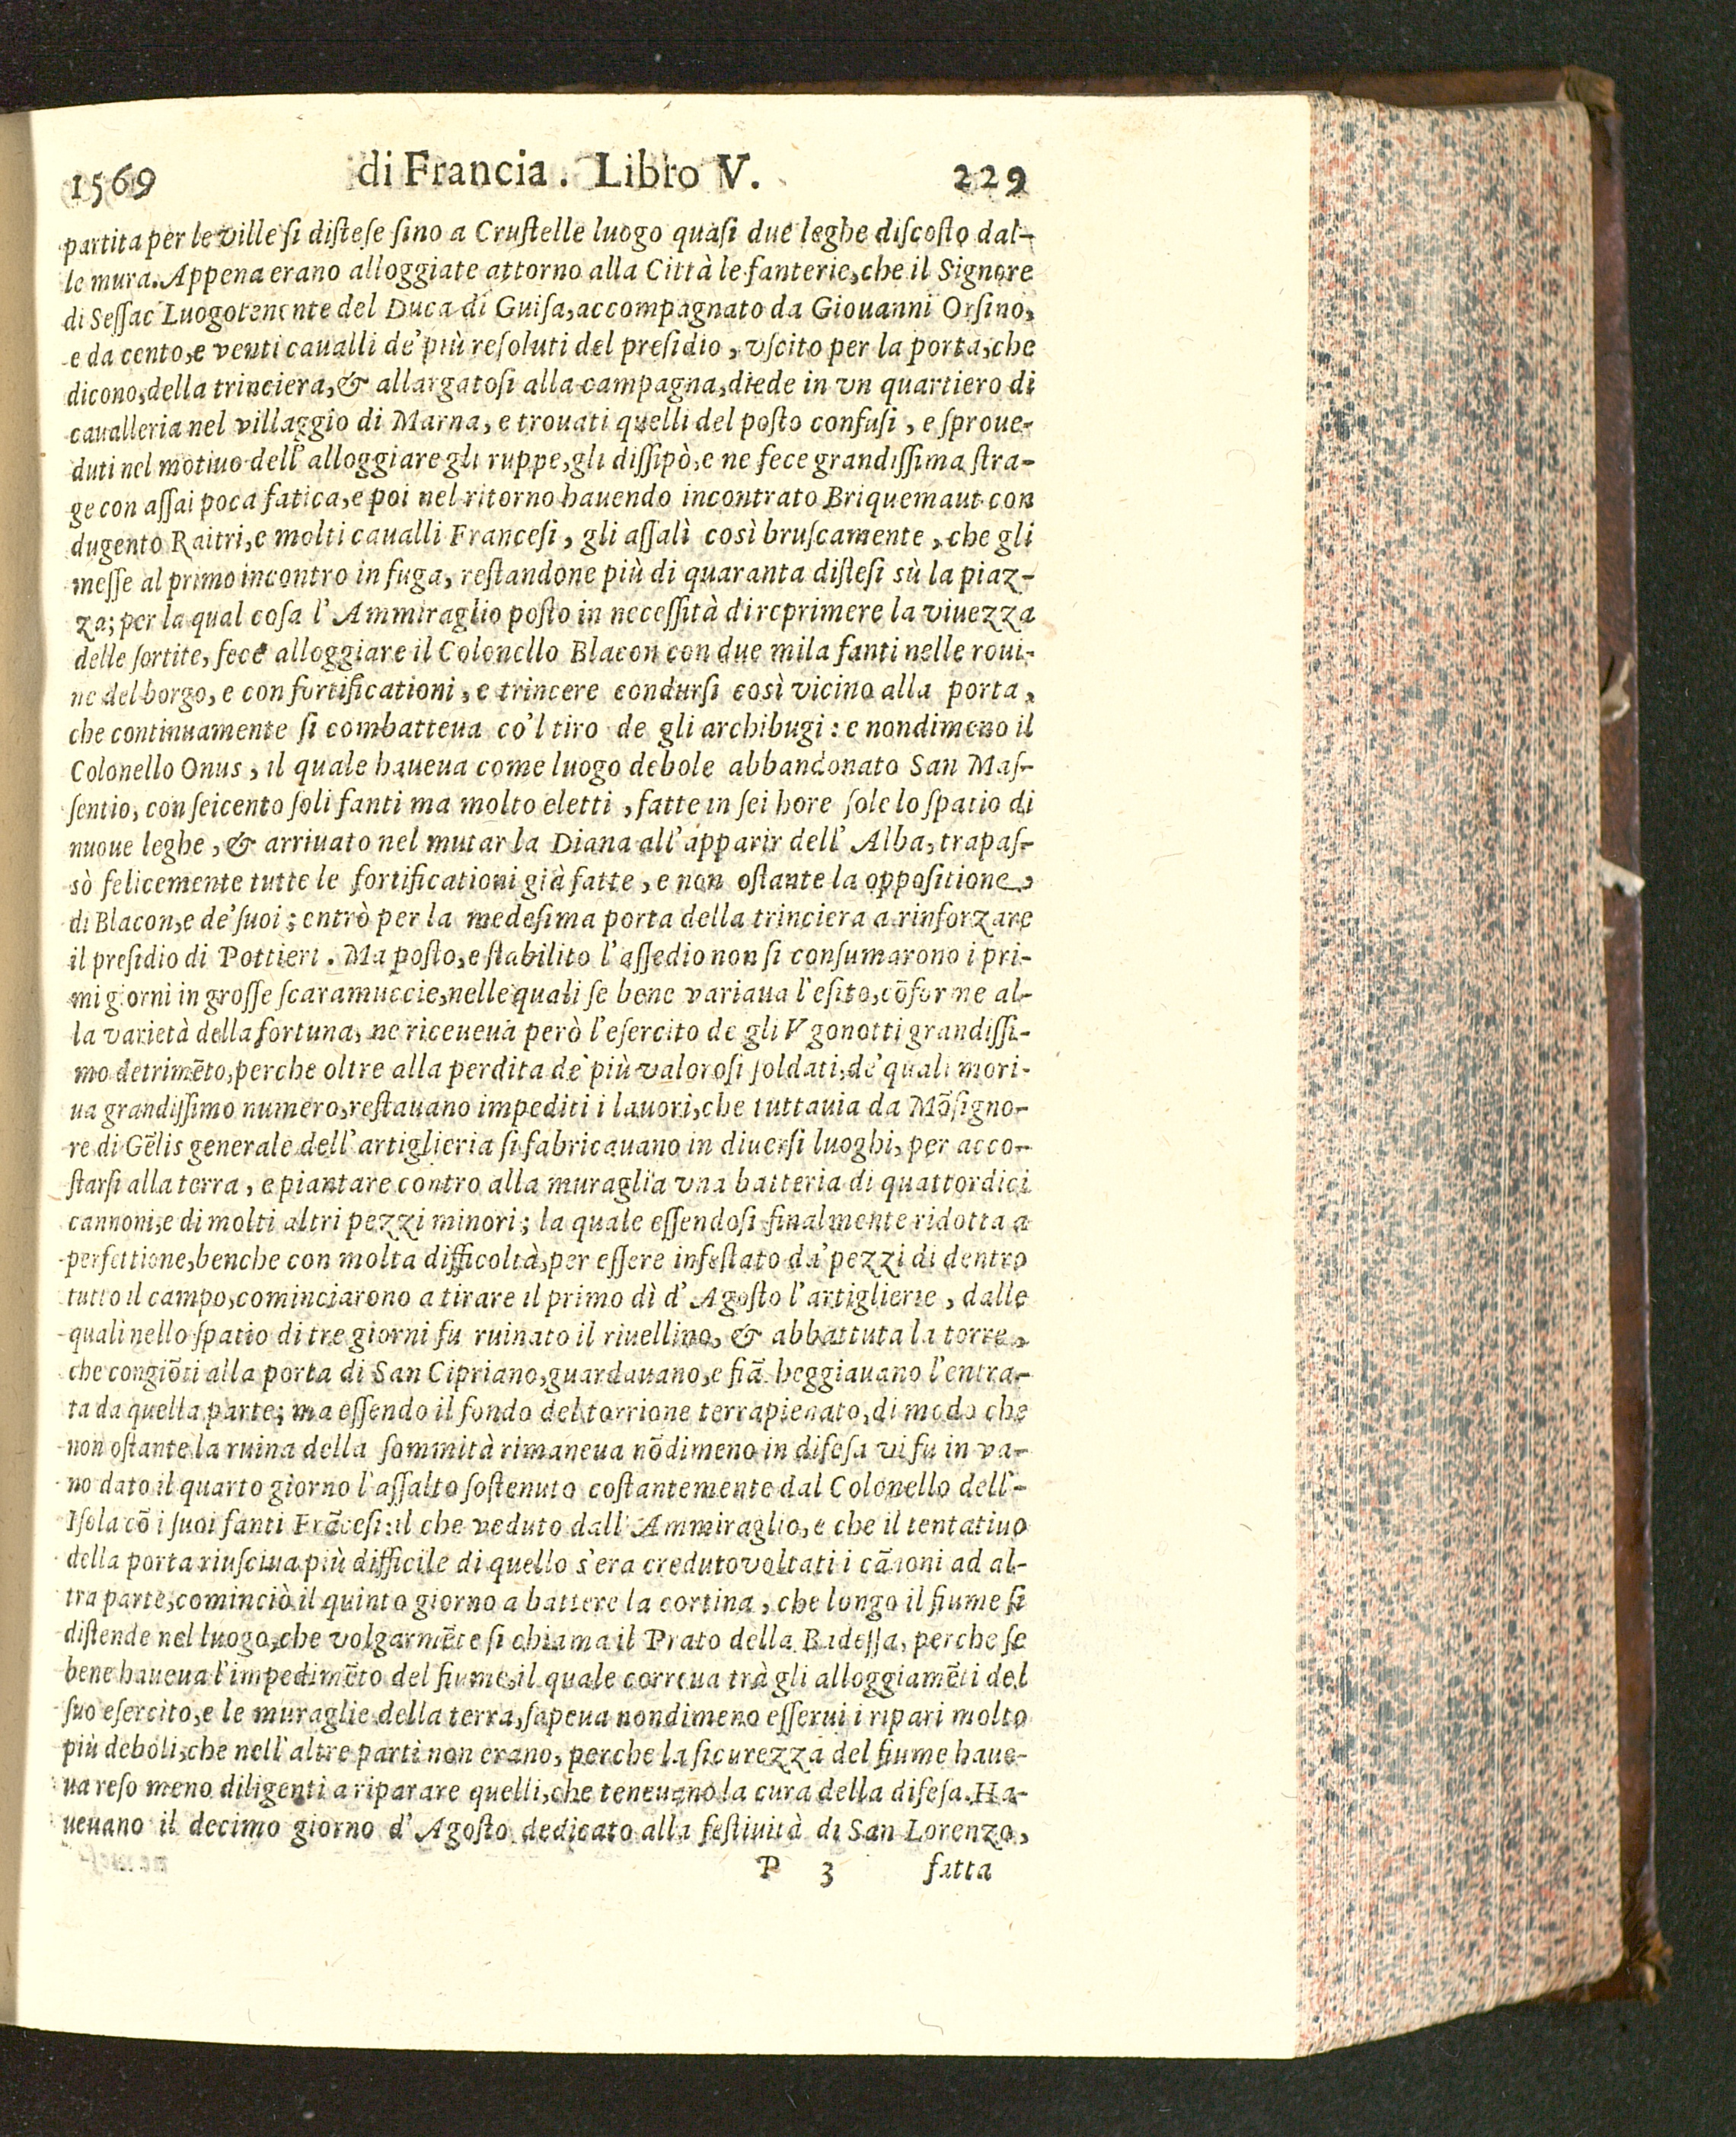 1569 di Francia. Libro V. 229
partita per le ville si distese sino a Crustelle luogo quasi due leghe discosto dal-
le mura. Appena erano alloggiate attorno alla Città le fanterie, che il Signore
di Sessac Luogotenente del Duca di Guisa, accompagnato da Giouanni Orsino,
e da cento, e venti caualli de' più resoluti del presidio, vscito per la porta, che
dicono, della trinciera, & allargatosi alla campagna, diede in vn quartiero di
caualleria nel villaggio di Marna, e trouati quelli del posto confusi, e sproue-
duti nel motiuo dell' alloggiare gli ruppe, gli dissipò, e ne fece grandissima stra-
ge con assai poca fatica, e poi nel ritorno hauendo incontrato Briquemaut con
dugento Raitri, e molti caualli Francesi, gli assalì così bruscamente, che gli
messe al primo incontro in fuga, restandone più di quaranta distesi sù la piaz-
za; per la qual cosa l' Ammiraglio posto in necessità di reprimere la viuezza
delle sortite, fece alloggiare il Colonello Blacon con due mila fanti nelle roui-
ne del borgo, e con fortificationi, e trincere condursi così vicino alla porta,
che continuamente si combatteua co'l tiro de gli archibugi: e nondimeno il
Colonello Onus, il quale haueua come luogo debole abbandonato San Mas-
sentio, con seicento soli fanti ma molto eletti, fatte in sei hore sole lo spatio di
nuoue leghe, & arriuato nel mutar la Diana all' apparir dell' Alba, trapas-
sò felicemente tutte le fortificationi già fatte, e non ostante la oppositione,
di Blacon, e de' suoi; entrò per la medesima porta della trinciera a rinforzare
il presidio di Pottieri. Ma posto, e stabilito l'assedio non si consumarono i pri-
mi giorni in grosse scaramuccie, nelle quali se bene variaua l'esito, cōforme al-
la varietà della fortuna, ne riceueua però l'esercito de gli Vgonotti grandissi-
mo detrimēto, perche oltre alla perdita de' più valorosi soldati, de' quali mori-
ua grandissimo numero, restauano impediti i lauori, che tuttauia da Mōsigno-
re di Gēlis generale dell' artiglieria si fabricauano in diuersi luoghi, per acco-
starsi alla terra, e piantare contro alla muraglia vna batteria di quattordici
cannoni, e di molti altri pezzi minori; la quale essendosi finalmente ridotta a
perfettione, benche con molta difficoltà, per essere infestato da' pezzi di dentro
tutto il campo, cominciarono a tirare il primo dì d' Agosto l'artiglierie, dalle
quali nello spatio di tre giorni fu ruinato il riuellino, & abbattuta la torre,
che congiōti alla porta di San Cipriano, guardauano, e fiā heggiauano l'entra-
ta da quella parte; ma essendo il fondo del torrione terrapienato, di modo che
non ostante la ruina della sommità rimaneua nōdimeno in difesa vi fu in va-
no dato il quarto giorno l'assalto sostenuto costantemente dal Colonello dell'-
Isola cō i suoi fanti Frācesi: il che veduto dall' Ammiraglio, e che il tentatiuo
della porta riusciua più difficile di quello s'era creduto voltati i cānoni ad al-
tra parte, cominciò il quinto giorno a battere la cortina, che lungo il fiume si
distende nel luogo, che volgarmēte si chiama il Prato della Badessa, perche se
bene haueua l'impedimēto del fiume, il quale correua trà gli alloggiamēti del
suo esercito, e le muraglie della terra, sapeua nondimeno esserui i ripari molto
più deboli, che nell' altre parti non erano, perche la sicurezza del fiume haue-
ua reso meno diligenti a riparare quelli, che teneuano la cura della difesa. Ha-
ueuano il decimo giorno d' Agosto dedicato alla festiuità di San Lorenzo,
P 3 fatta